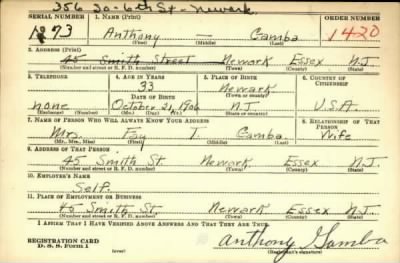 356 So-6th St- Newark
SERIAL NUMBER 1. NAME (Print) ORDER NUMBER
1873 Anthony — Gamba 1420
(First) (Middle) (Last)
2. ADDRESS (Print)
45 Smith Street Newark Essex N.J.
(Number and street or R. F. D. number) (Town) (County) (State)
3. TELEPHONE 4. AGE IN YEARS 5. PLACE OF BIRTH 6. COUNTRY OF CITIZENSHIP
33 Newark
DATE OF BIRTH (Town or county)
none October 21, 1906 N.J. U.S.A.
(Exchange) (Number) (Mo.) (Day) (Yr.) (State or country)
7. NAME OF PERSON WHO WILL ALWAYS KNOW YOUR ADDRESS 8. RELATIONSHIP OF THAT PERSON
Mrs. Fay T. Gamba Wife
(Mr., Mrs., Miss) (First) (Middle) (Last)
9. ADDRESS OF THAT PERSON
45 Smith St Newark Essex N.J.
(Number and street or R. F. D. number) (Town) (County) (State)
10. EMPLOYER'S NAME
Self.
11. PLACE OF EMPLOYMENT OR BUSINESS
45 Smith St. Newark Essex N.J.
(Number and street or R. F. D. number) (Town) (County) (State)
I AFFIRM THAT I HAVE VERIFIED ABOVE ANSWERS AND THAT THEY ARE TRUE.
REGISTRATION CARD
D. S. S. Form 1 (over) Anthony Gamba
(Registrant's signature)